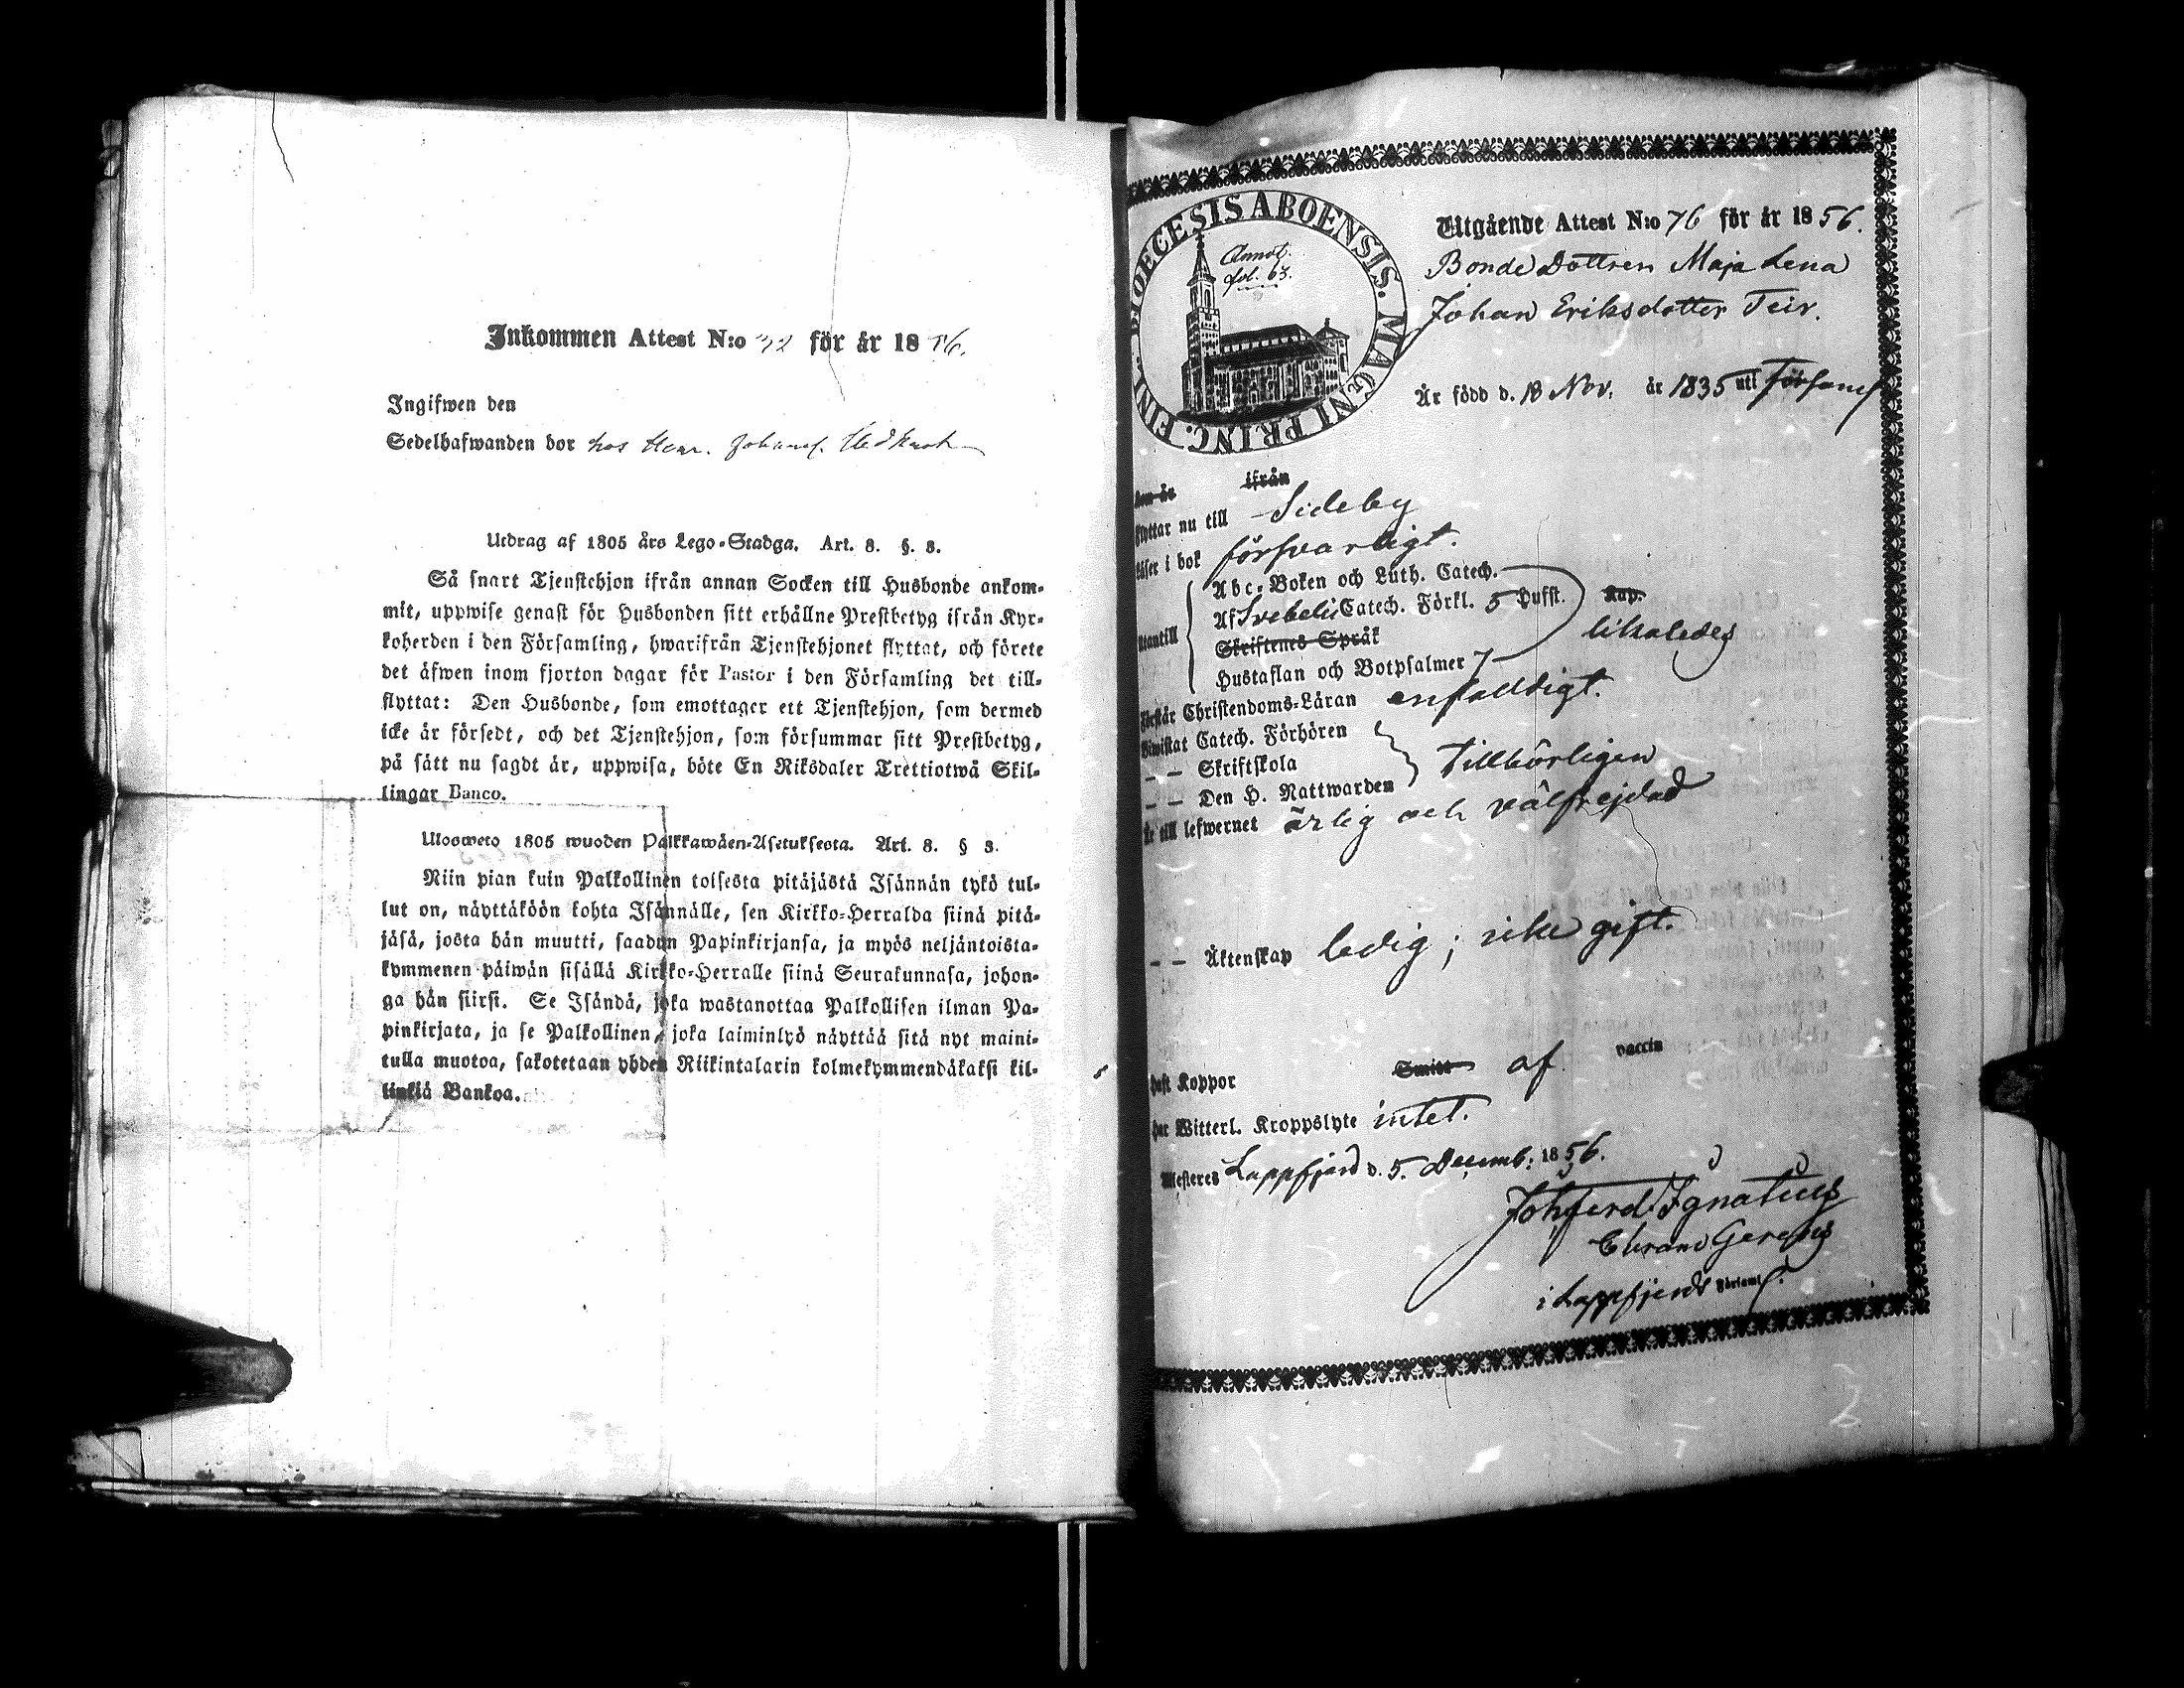 Inkommen Attest N:o 32 för år 1856.
Ingifwen den
Sedelhafwanden bor hos Henr. Johans.
Utdrag af 1805 års Lego-Stadga. Art. 8. §. 3.
Så snart Tjenstehjon ifrån annan Socken till Husbonde ankom-
mit, uppwise genast för Husbonden sitt erhållne Prestbetyg ifrån Kyr-
koherden i den Församling, hwarifrån Tjenstehjonet flyttat, och förete
det äfwen inom fjorton dagar för Pastor i den Församling det till-
flyttat: Den Husbonde, som emottager ett Tjenstehjon, som dermed
icke är försedt, och det Tjenstehjon, som försummar sitt Prestbetyg,
på sätt nu sagdt är, uppwisa, böte En Riksdaler Trettiotwå Skil-
lingar Banco.
Ulosweto 1805 wuoden Palkkawäen-Asetuksesta. Art. 8. § 3.
Niin pian kuin Palkollinen toisesta pitäjästä Isännän tykö tul-
lut on, näyttäköön kohta Isännälle, sen Kirkko-Herralda siinä pitä-
jäsä, josta hän muutti, saadun Papinkirjansa, ja myös neljäntoista-
kymmenen päiwän sisällä Kirkko-Herralle siinä Seurakunnasa, johon-
ga hän siirsi. Se Isändä, joka wastanottaa Palkollisen ilman Pa-
pinkirjata, ja se Palkollinen, joka laiminlyö näyttää sitä nyt maini-
tulla muotoa, sakotetaan yhden Riikintalarin kolmekymmendäkaksi kil-
linkiä Bankoa.
DIOECESIS ABOENSIS. MAGNI PRINC. FINL.
Annot.
fol. 63.
Utgående Attest N:o 76 för år 1856.
Bonde Dottren Maja Lena
Johan Eriksdotter Teir.
Är född d. 18 Nov. år 1835 uti Förs
ifrån
flyttar nu till Sideby
läser i bok försvarligt.
Abc-Boken och Luth. Catech.
Af Svebelii Catech. Förkl. 5 Hufst. Kap.
utantill
Skriftenes Språk likaledes
Hustaflan och Botpsalmer 7
Förstår Christendoms-Läran enfaldigt.
Biwistat Catech. Förhören
— — Skriftskola Tillbörligen
— — Den H. Nattwarden
Är till lefwernet ärlig och välfrejdad
— — Äktenskap ledig; icke gift.
haft Koppor Smitt af vaccin
har Witterl. Kroppslyte intet.
Attesteres Lappfjerd d. 5. Decemb. 1856.
Joh ferd Ignatius
i Lappfjerds Förs